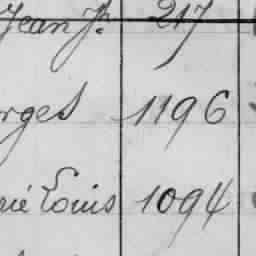 Jean Jh. 217
rges 1196
rié Louis 1094